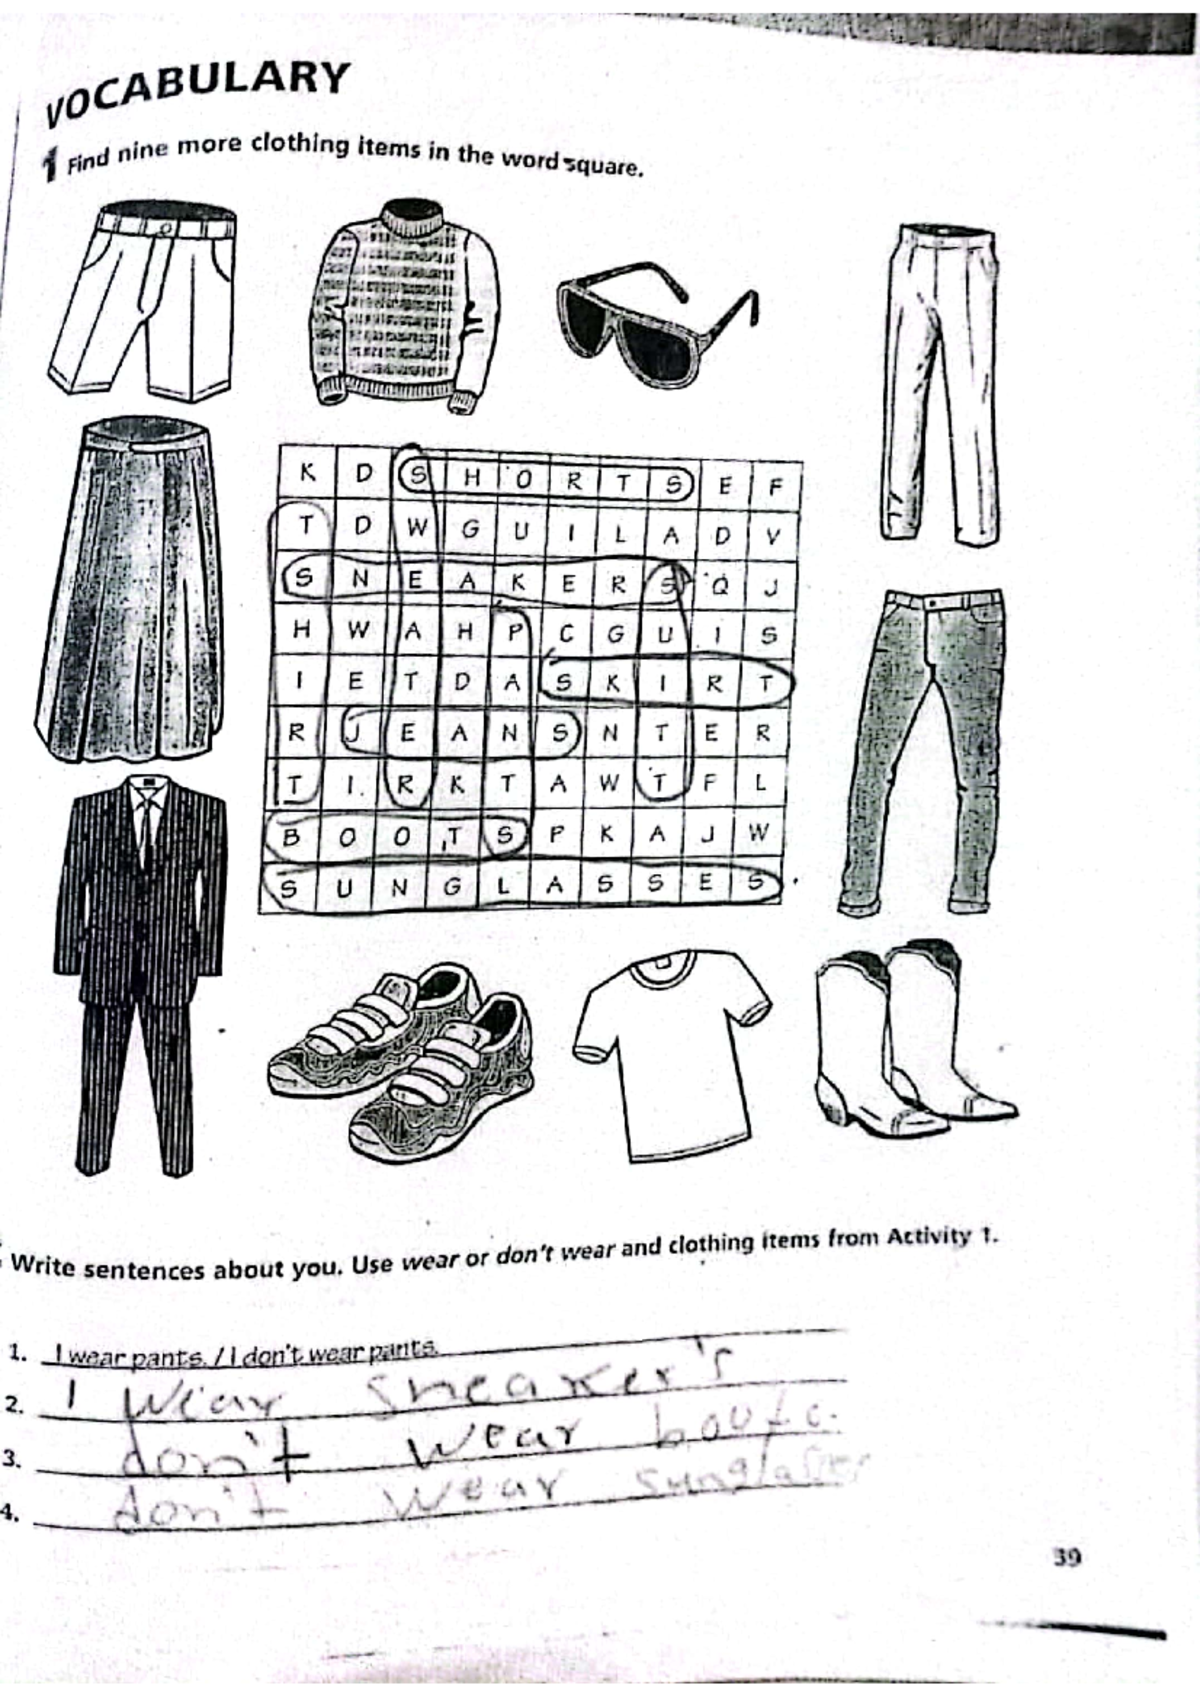 VOCABULARY
1 Find nine more clothing items in the word square.
K D S H O R T S E F
T D W G U I L A D V
S N E A K E R S Q J
H W A H P C G U I S
I E T D A S K I R T
R J E A N S N T E R
T I R K T A W T F L
B O O T S P K A J W
S U N G L A S S E S
Write sentences about you. Use wear or don't wear and clothing items from Activity 1.
1. I wear pants. / I don't wear pants.
2. I wear sneaker's
3. don't wear
4. don't wear sunglasses
39